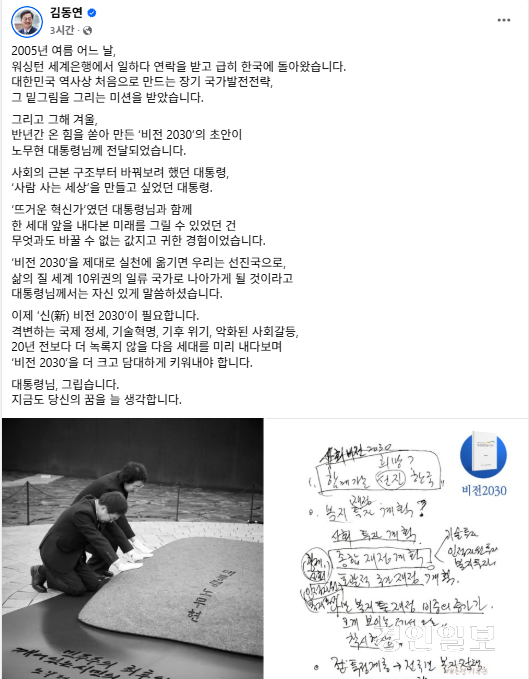 김동연
3시간
2005년 여름 어느 날,
워싱턴 세계은행에서 일하다 연락을 받고 급히 한국에 돌아왔습니다.
대한민국 역사상 처음으로 만드는 장기 국가발전전략,
그 밑그림을 그리는 미션을 받았습니다.
그리고 그해 겨울,
반년간 온 힘을 쏟아 만든 '비전 2030'의 초안이
노무현 대통령님께 전달되었습니다.
사회의 근본 구조부터 바꿔보려 했던 대통령,
'사람 사는 세상'을 만들고 싶었던 대통령.
'뜨거운 혁신가'였던 대통령님과 함께
한 세대 앞을 내다본 미래를 그릴 수 있었던 건
무엇과도 바꿀 수 없는 값지고 귀한 경험이었습니다.
'비전 2030'을 제대로 실천에 옮기면 우리는 선진국으로,
삶의 질 세계 10위권의 일류 국가로 나아가게 될 것이라고
대통령님께서는 자신 있게 말씀하셨습니다.
이제 '신(新) 비전 2030'이 필요합니다.
격변하는 국제 정세, 기술혁명, 기후 위기, 악화된 사회갈등,
20년 전보다 더 녹록지 않을 다음 세대를 미리 내다보며
'비전 2030'을 더 크고 담대하게 키워내야 합니다.
대통령님, 그립습니다.
지금도 당신의 꿈을 늘 생각합니다.
대통령
노무현
민주주의 최후의
비전2030
사회비전2030
희망?
1. 함께가는 선진 한국
재정
0. 복지 투자 계획?
사회 투자 계획
종합 재정 계획
기술투자
인적자원투자
복지투자
재정 계획.
경인일보